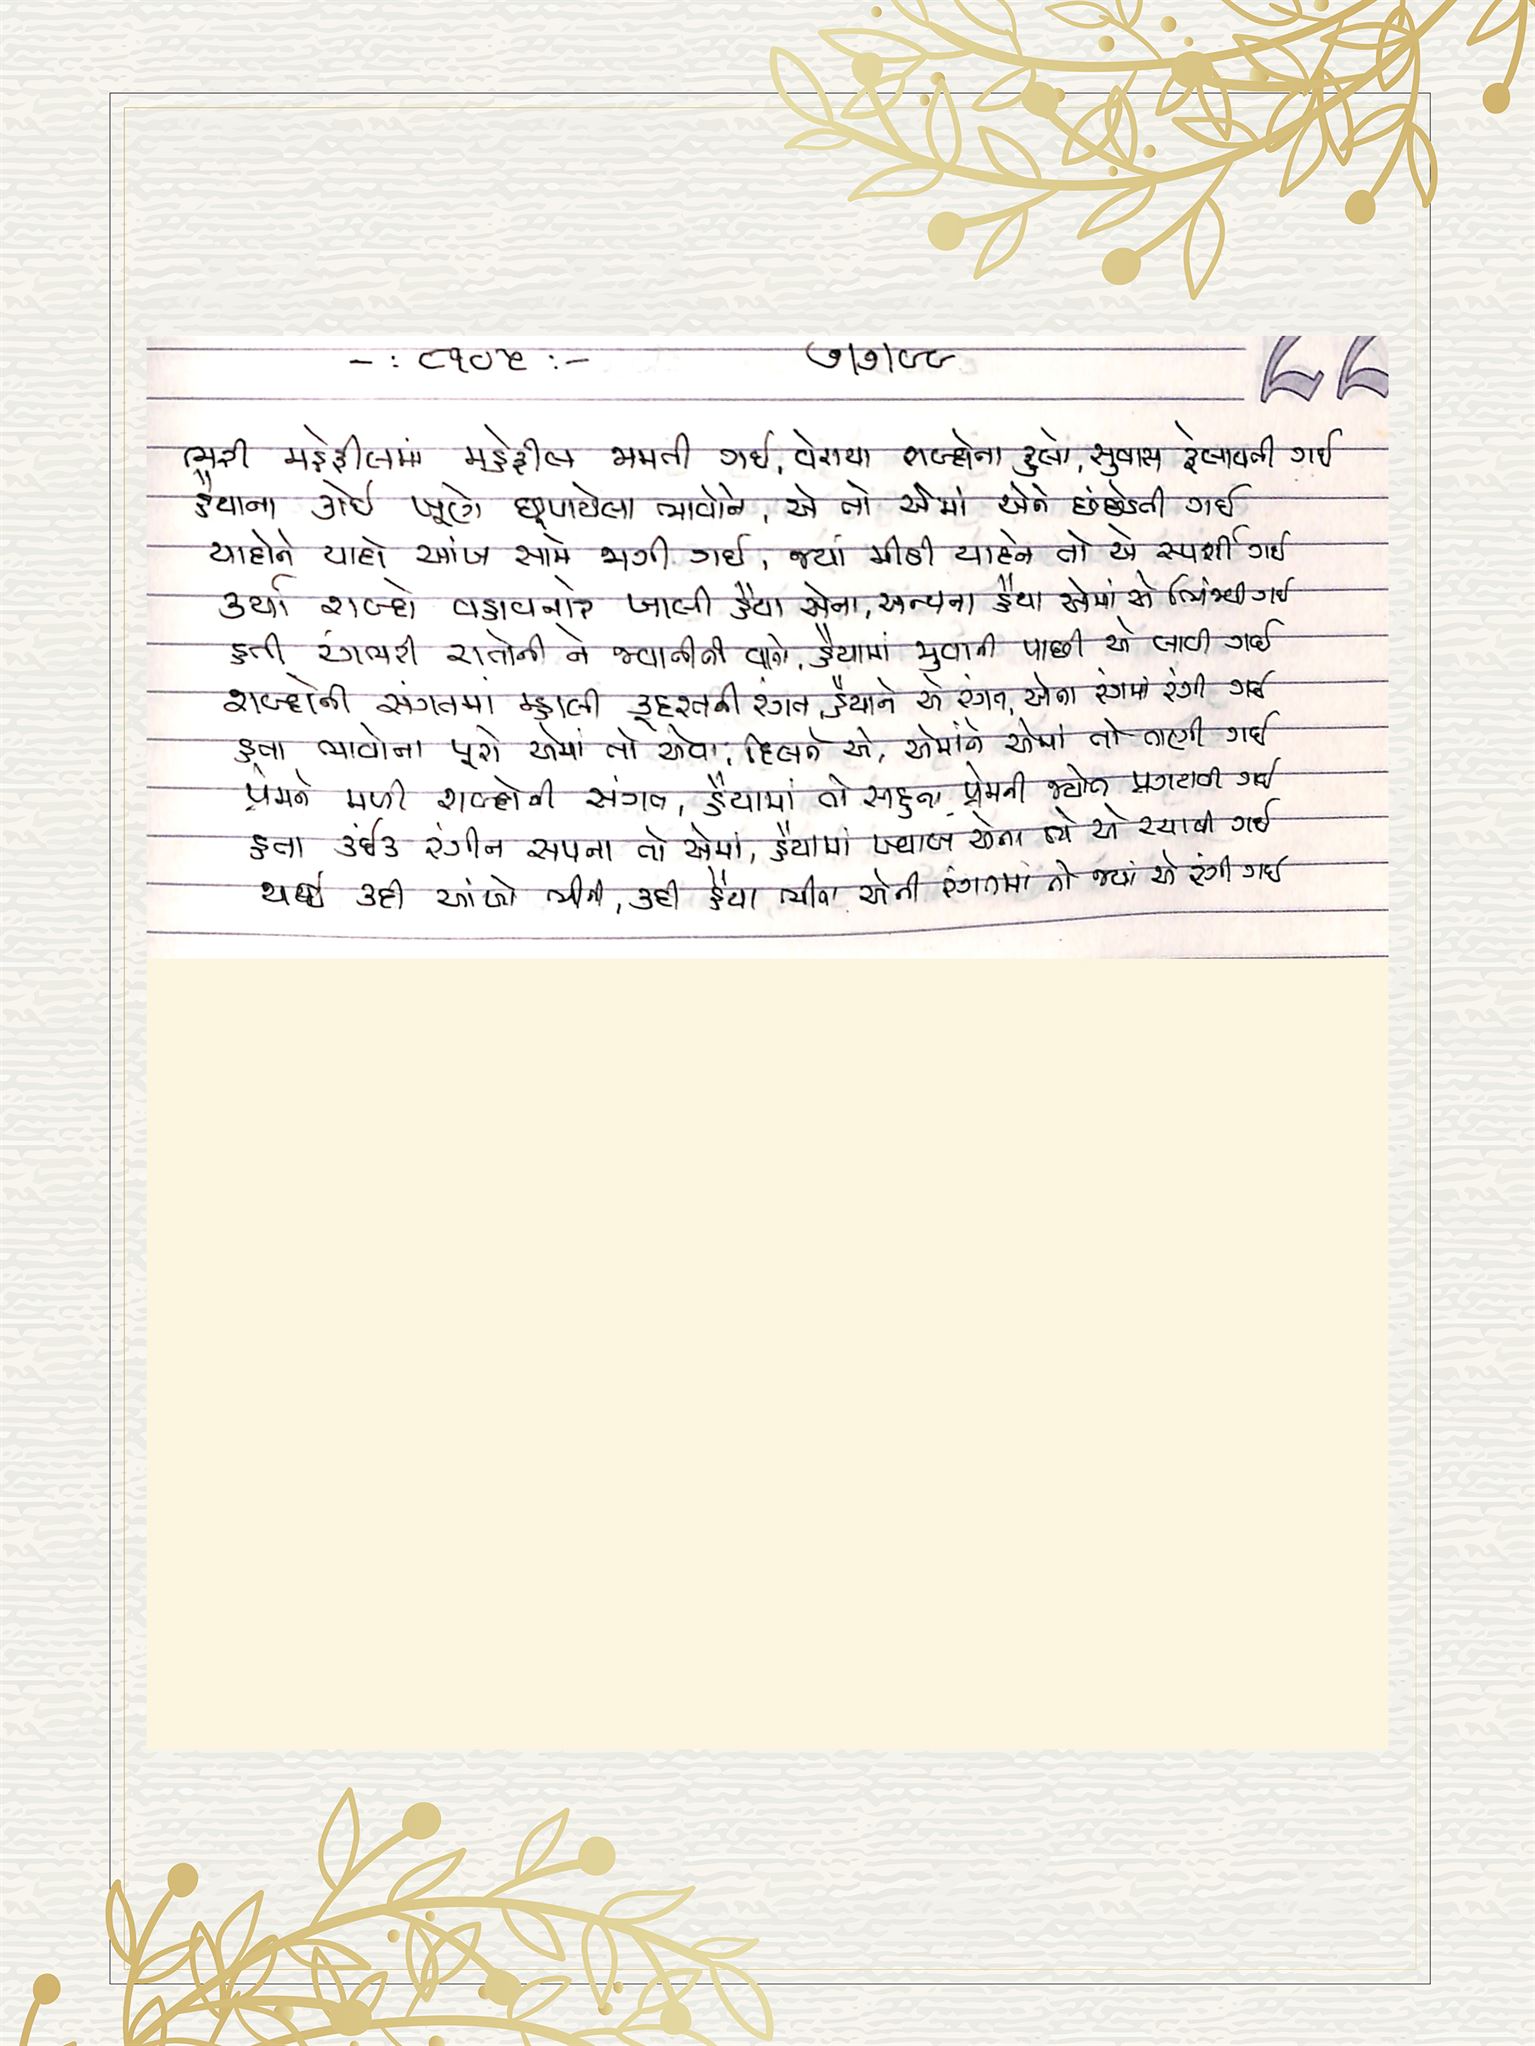 -: ૮૧૦૫ :- ૭|૭|૯૯
ભરી મહેફીલમાં મહેફીલ જમતી ગઈ, વેરાયા શબ્દોના ફુલો, સુવાસ ફેલાવતી ગઈ
હૈયાના કોઈ ખૂણે છૂપાયેલા ભાવોને, એ તો એમાં એને છંછેડતી ગઈ
યાદોને યાદો આંખ સામે જાગી ગઈ, જ્યાં મીઠી યાદોને તો એ સ્પર્શી ગઈ
કર્યા શબ્દો વહાવનારે ખાલી હૈયા એના, અન્યના હૈયા એમાં એ ભિંજવી ગઈ
હતી રંગભરી રાતોની ને જવાનીની વાતો, હૈયામાં જુવાની પાછી એ લાવી ગઈ
શબ્દોની સંગતમાં મ્હાલી કુદરતની રંગત, હૈયાને એ રંગત, એના રંગમાં રંગી ગઈ
હતા ભાવોના પૂરો એમાં તો એવા, દિલને એ, એમાંને એમાં તો તાણી ગઈ
પ્રેમને મળી શબ્દોની સંગત, હૈયામાં તો સહુના પ્રેમની જ્યોત પ્રગટાવી ગઈ
હતા કંઈક રંગીન સપના તો એમાં, હૈયામાં ખ્વાબ એના એ રચાવી ગઈ
થઈ કદી આંખો ભીની, કદી હૈયા ભીના એની રંગતમાં તો જ્યાં એ રંગી ગઈ